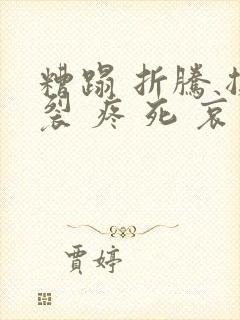 糟蹋 折騰
裂 疼 死 哀
賈婷